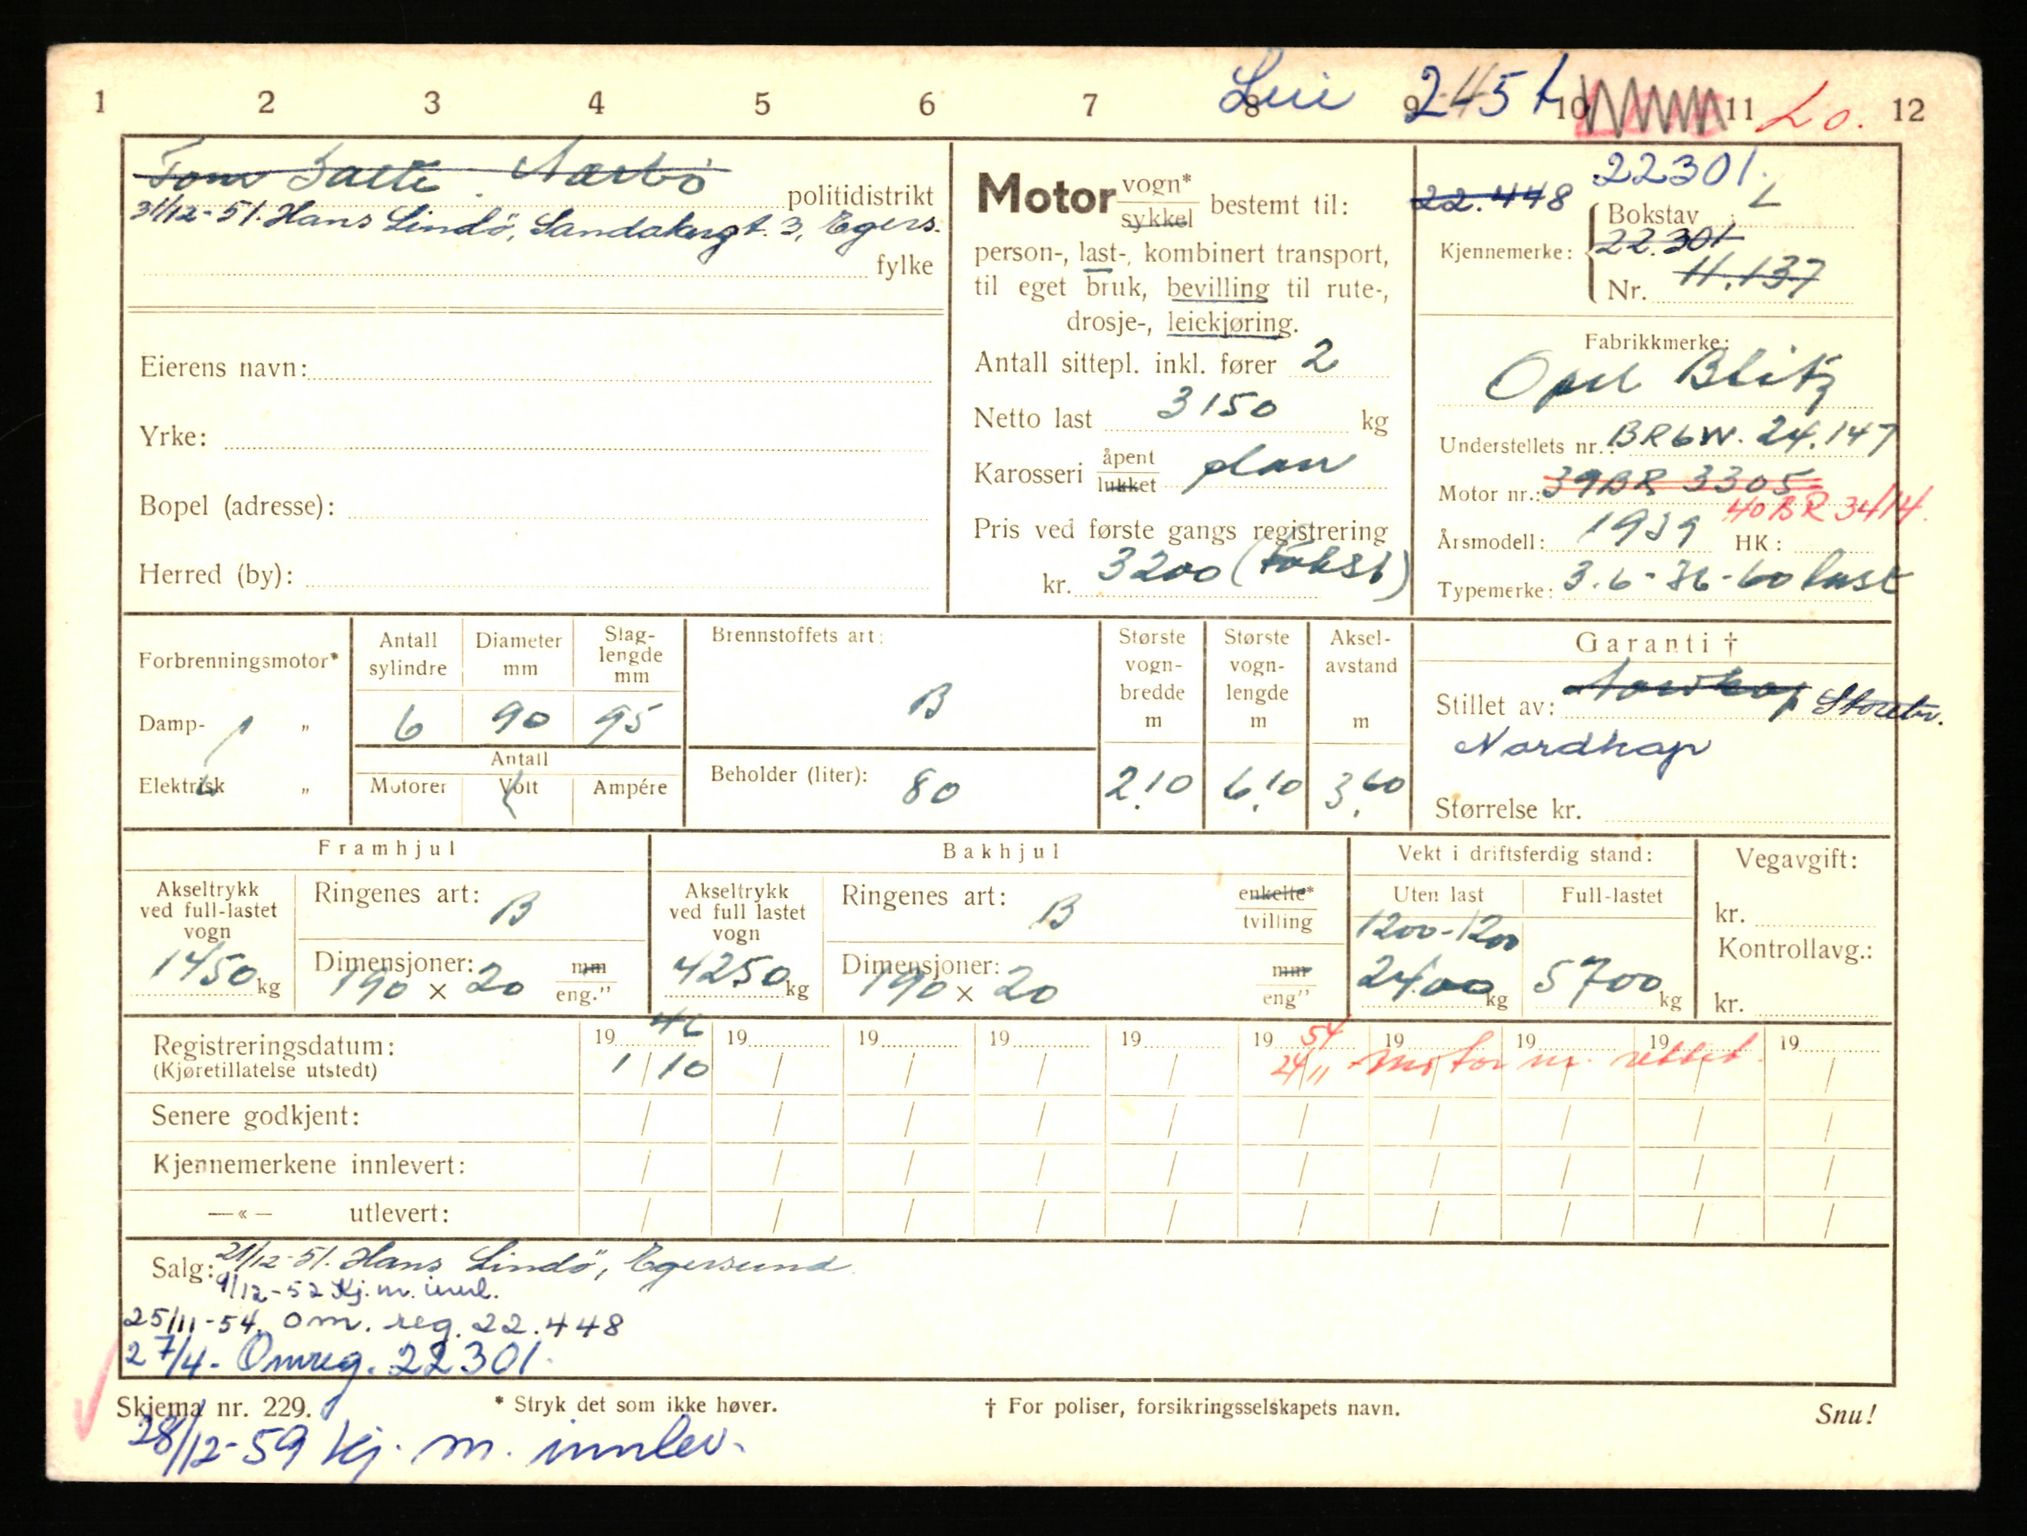 1 2 3 4 5 6 7 8 9 10 11 12
Leie 245 t Lo.
Tom Salte. Nærbø politidistrikt
31/12-51. Hans Lindö, Sandakergt. 3, Egers.
fylke
Eierens navn:
Yrke:
Bopel (adresse):
Herred (by):
Motor vogn* sykkel bestemt til:
person-, last-, kombinert transport,
til eget bruk, bevilling til rute-,
drosje-, leiekjøring.
Antall sittepl. inkl. fører 2
Netto last 3150 kg
Karosseri åpent lukket plan
Pris ved første gangs registrering
kr. 3200 (takst)
22301.
22.448
Kjennemerke: Bokstav L
22.301
Nr. 11.137
Fabrikkmerke:
Opel Blitz
Understellets nr.: BR6W. 24.147
Motor nr.: 39BR 3305
40BR 3414.
Årsmodell: 1939 HK:
Typemerke: 3.6-36-60 last
Forbrenningsmotor*
Damp- "
Elektrisk "
Antall sylindre Diameter mm Slag-lengde mm
6 90 95
Antall
Motorer Volt Ampére
Brennstoffets art:
B
Beholder (liter): 80
Største vogn-bredde m Største vogn-lengde m Aksel-avstand m
2.10 6.10 3.60
Garanti †
Stillet av: Nordkap Storebr.
Nordkap
Størrelse kr.
Framhjul
Akseltrykk ved full-lastet vogn
1450 kg
Ringenes art: B
Dimensjoner: mm
190 × 20 eng."
Bakhjul
Akseltrykk ved full lastet vogn
4250 kg
Ringenes art: B enkelte* tvilling
Dimensjoner: mm
190 × 20 eng"
Vekt i driftsferdig stand:
Uten last Full-lastet
1200-1200
2400 kg 5700 kg
Vegavgift:
kr.
Kontrollavg.:
kr.
Registreringsdatum: 1946 19 19 19 19 1954 19 19 19 19
(Kjøretillatelse utstedt) 1/10 24/11 Motor nr. rettet.
Senere godkjent:
Kjennemerkene innlevert:
—«— utlevert:
Salg: 21/12-51. Hans Lindö, Egersund
9/12-52 Kj. m. innl.
25/11-54. om. reg. 22.448
27/4- Omreg. 22301.
Skjema nr. 229. * Stryk det som ikke høver. † For poliser, forsikringsselskapets navn. Snu!
28/12-59 Kj. m. innlev.